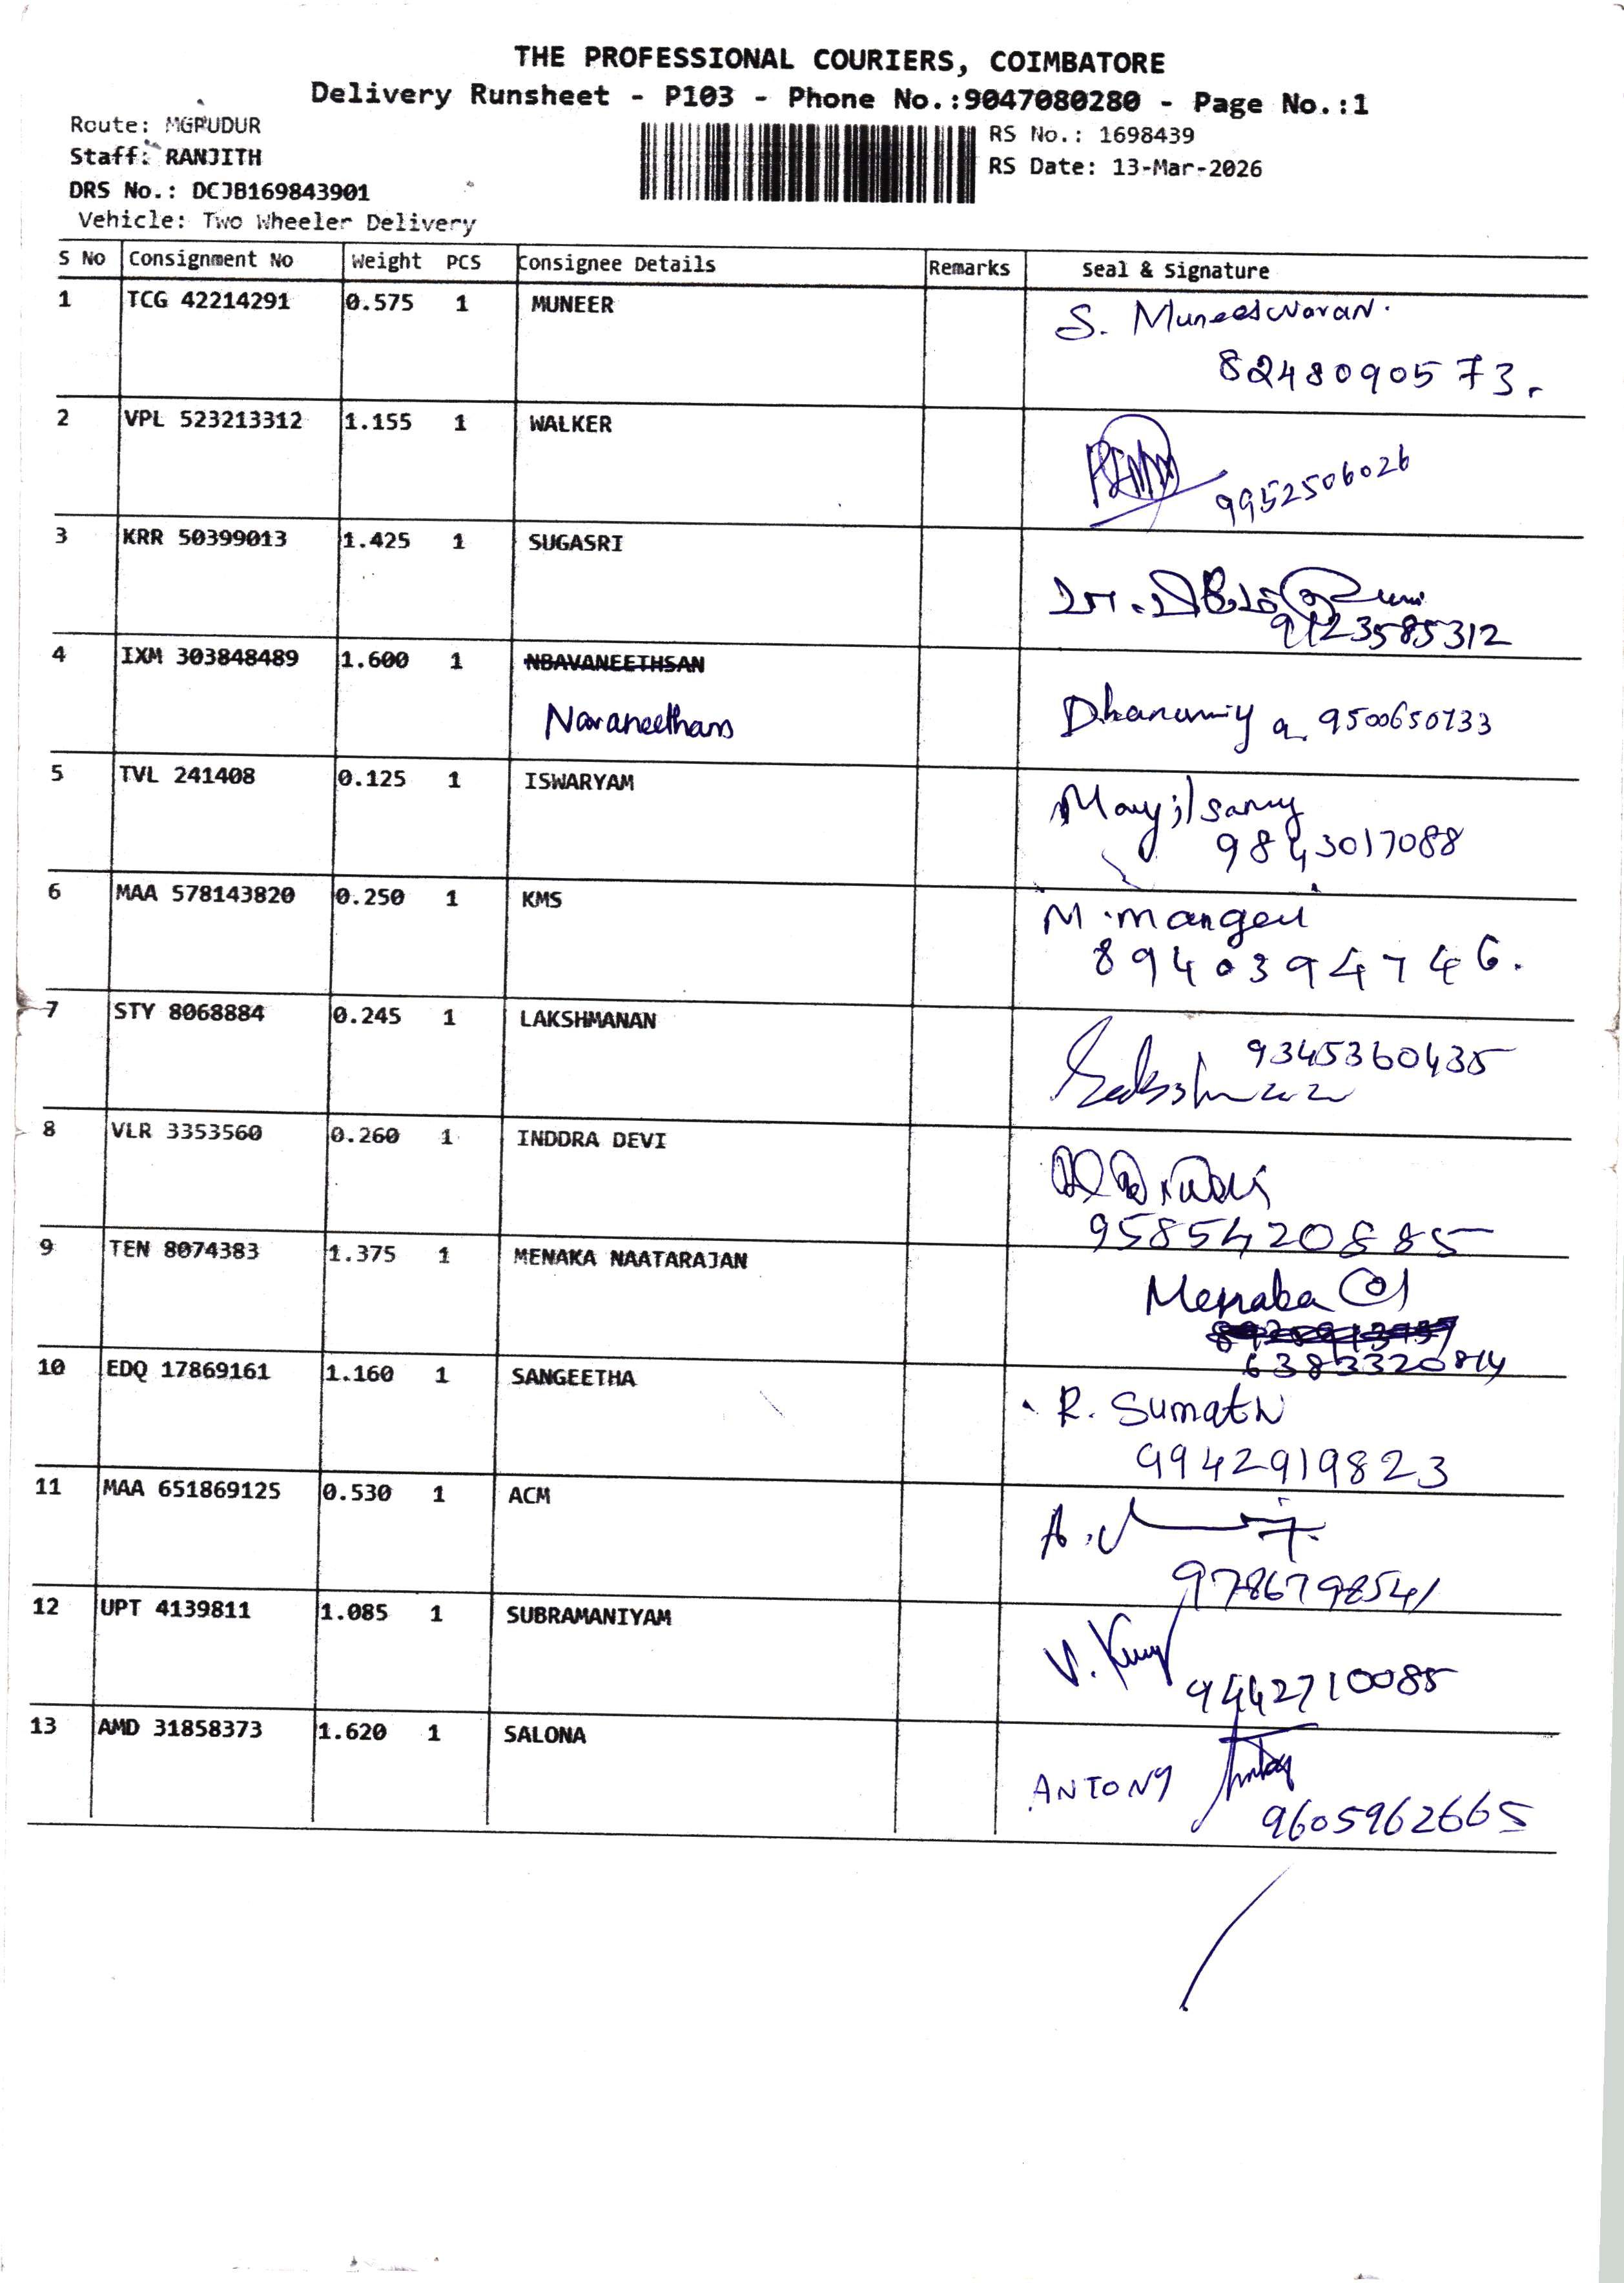 THE PROFESSIONAL COURIERS, COIMBATORE
Delivery Runsheet - P103 - Phone No.:9047080280 - Page No.:1
Route: MGPUDUR
Staff: RANJITH
DRS No.: DCJB169843901
Vehicle: Two Wheeler Delivery
RS No.: 1698439
RS Date: 13-Mar-2026
S No Consignment No Weight PCS Consignee Details Remarks Seal & Signature
1 TCG 42214291 0.575 1 MUNEER S. Muneeswaran.
8248090573.
2 VPL 523213312 1.155 1 WALKER
9952506026
3 KRR 50399013 1.425 1 SUGASRI
9123585312
4 IXM 303848489 1.600 1 NBAVANEETHSAN
Navaneethans 9500650733
5 TVL 241408 0.125 1 ISWARYAM
9843017088
6 MAA 578143820 0.250 1 KMS M.
8940394746.
7 STY 8068884 0.245 1 LAKSHMANAN 9345360435
8 VLR 3353560 0.260 1 INDDRA DEVI
9585420885
9 TEN 8074383 1.375 1 MENAKA NAATARAJAN Menaka
6383320814
10 EDQ 17869161 1.160 1 SANGEETHA R. Sumathi
9942919823
11 MAA 651869125 0.530 1 ACM
9786798541
12 UPT 4139811 1.085 1 SUBRAMANIYAM V.
9442710085
13 AMD 31858373 1.620 1 SALONA ANTONY
9605962665